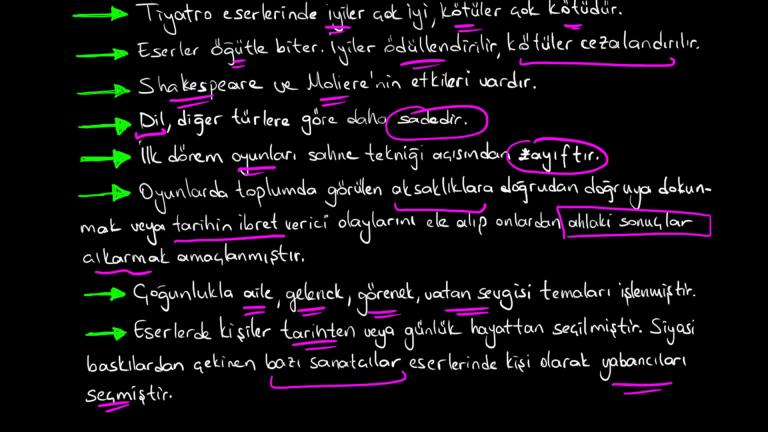 Tiyatro eserlerinde iyiler çok iyi, kötüler çok kötüdür.
Eserler öğütle biter. İyiler ödüllendirilir, kötüler cezalandırılır.
Shakespeare ve Moliere'nin etkileri vardır.
Dil, diğer türlere göre daha sadedir.
İlk dönem oyunları sahne tekniği açısından zayıftır.
Oyunlarda toplumda görülen aksaklıklara doğrudan doğruya dokun-
mak veya tarihin ibret verici olaylarını ele alıp onlardan ahlaki sonuçlar
çıkarmak amaçlanmıştır.
Çoğunlukla aile, gelenek, görenek, vatan sevgisi temaları işlenmiştir.
Eserlerde kişiler tarihten veya günlük hayattan seçilmiştir. Siyasi
baskılardan çekinen bazı sanatçılar eserlerinde kişi olarak yabancıları
seçmiştir.